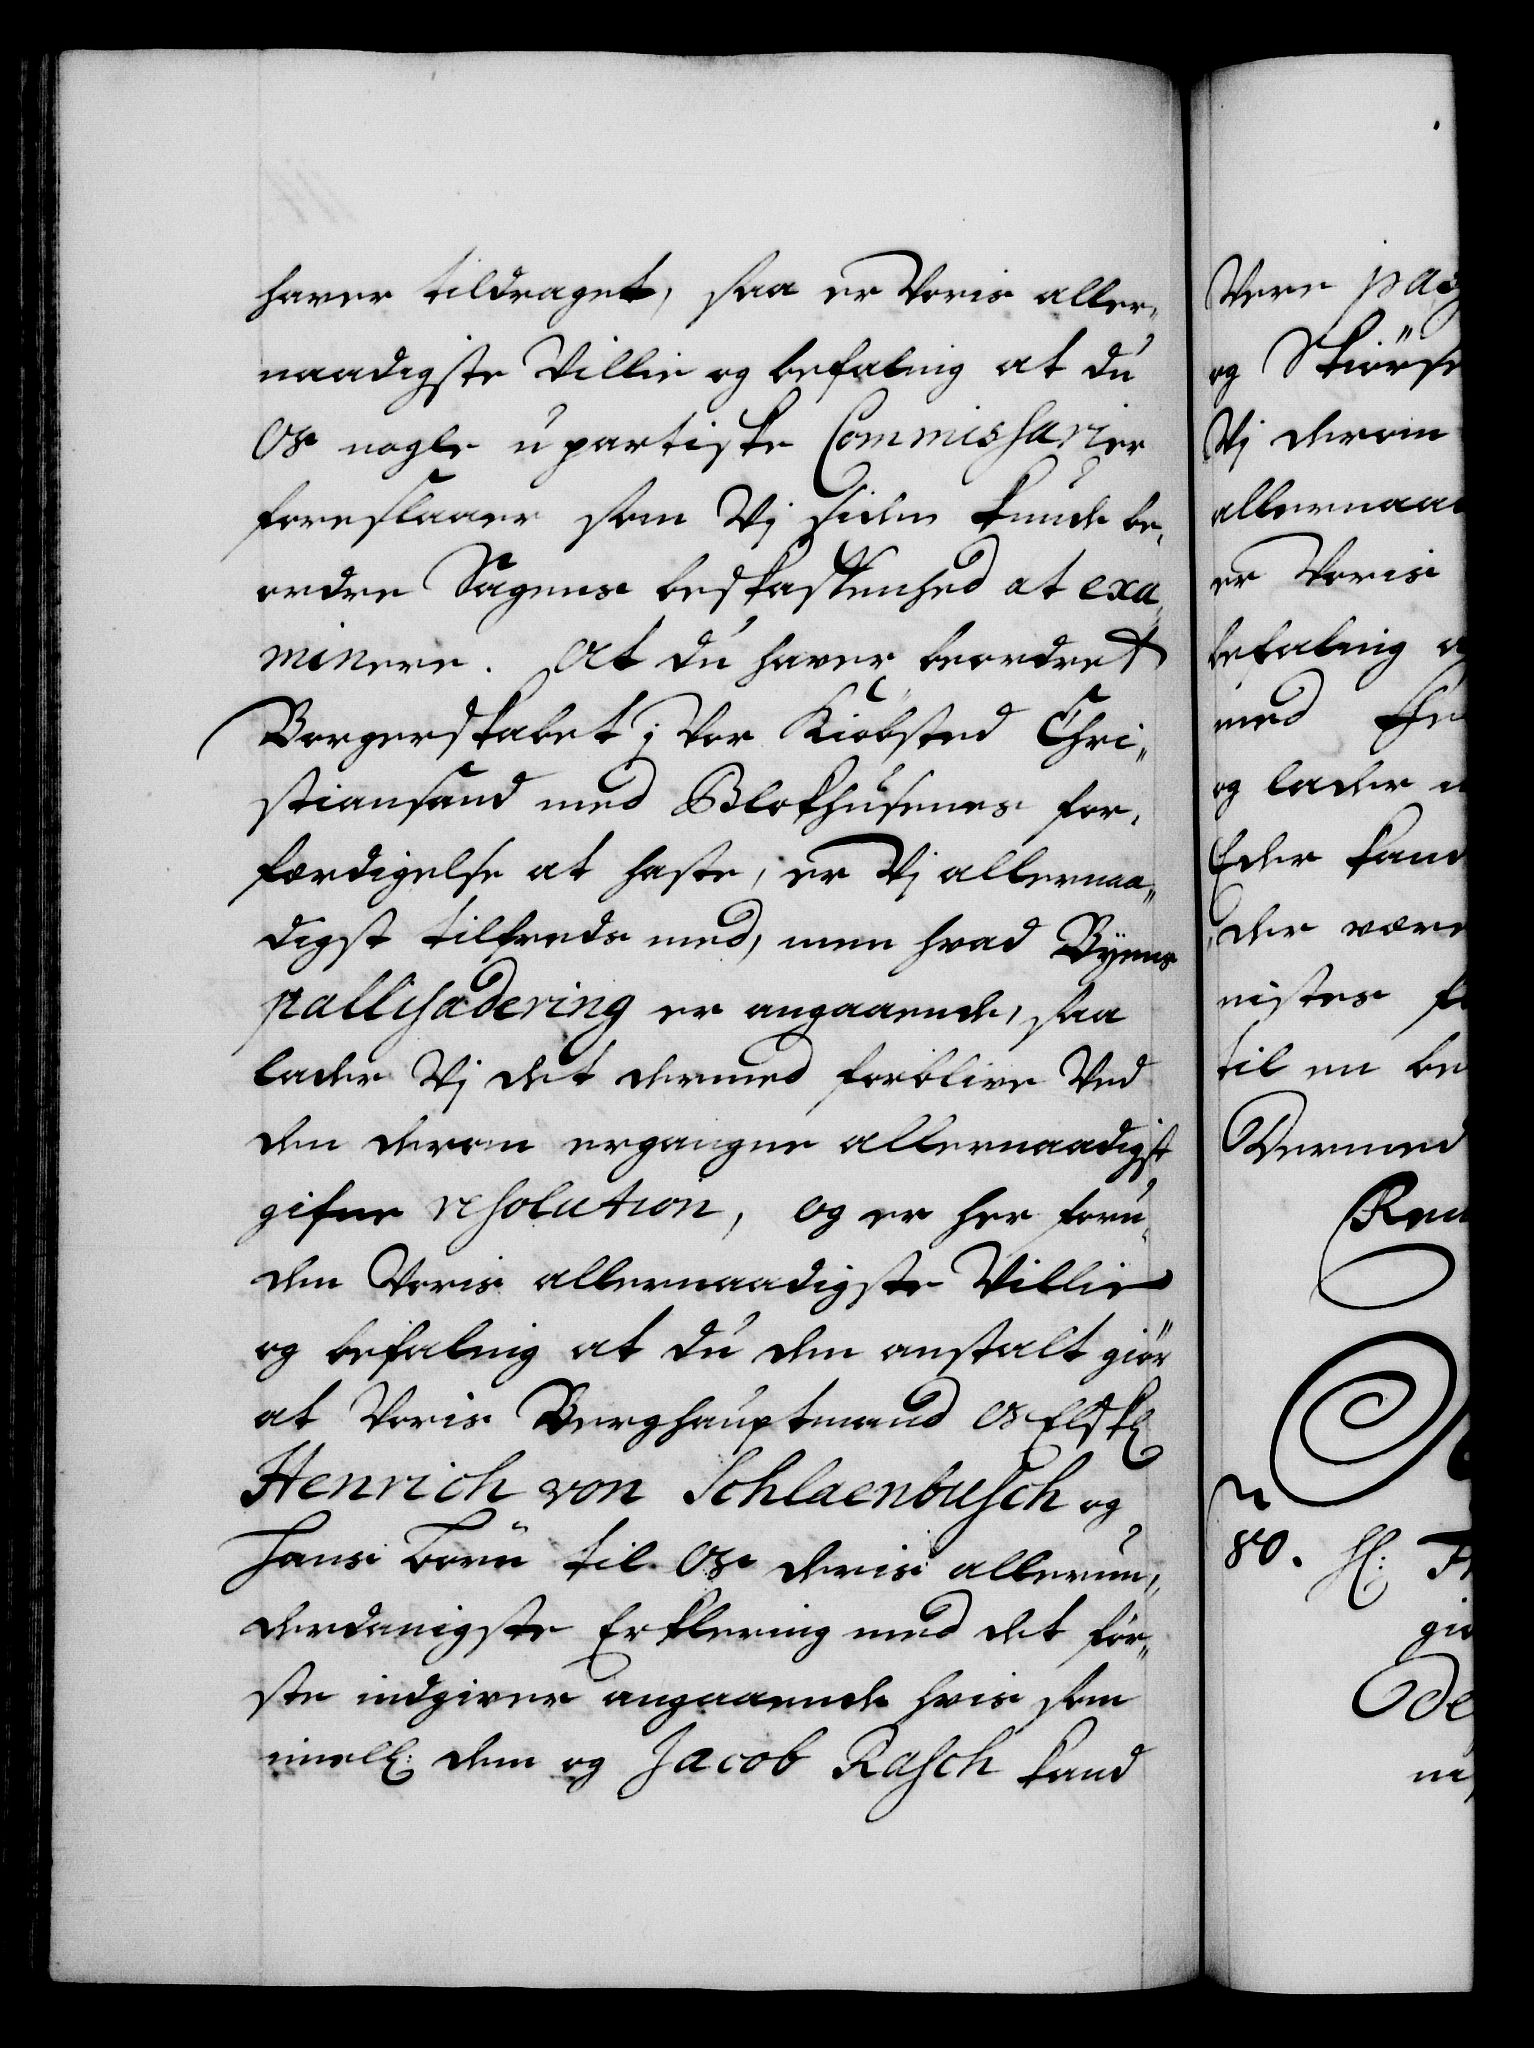 hafver tildraget, saa er Voris aller„
naadigste Villie og befalnig at du
Os nogle upartiske Commissarier
foreslaaer som Vj siden kunde be„
ordre Sagens beskaffenhed at exa„
minere. At du hafver beordret
Borgerskabet j Vor Kiöbsted Chri„
stiansand med Blokhusenes for„
færdigelse at haste, er Vj allernaa„
digst tilfreds med, men hvad Byens
pallisadering er angaaende, saa
lader Vj det dermed forblive Ved
den derom ergangne allernaadigst
gifne resolution, og er her foru„
den Voris allernaadigste Villie
og befalnig at du den anstalt giör
at Voris Berghauptmand Os Elskl
Henrich von Schlaenbusch og
HansBorú til Os deris allerun„
derdanigste Erklering med det för„
ste indgiver angaaende hvis som
imell: dem og Jacob Rasch kand
Vere paa
og Skiörse
Vj derom
allernaa
er Voris
befalnig
med
og lader
Eder kand
der være
nistes
til en be
Dermed
80. H: